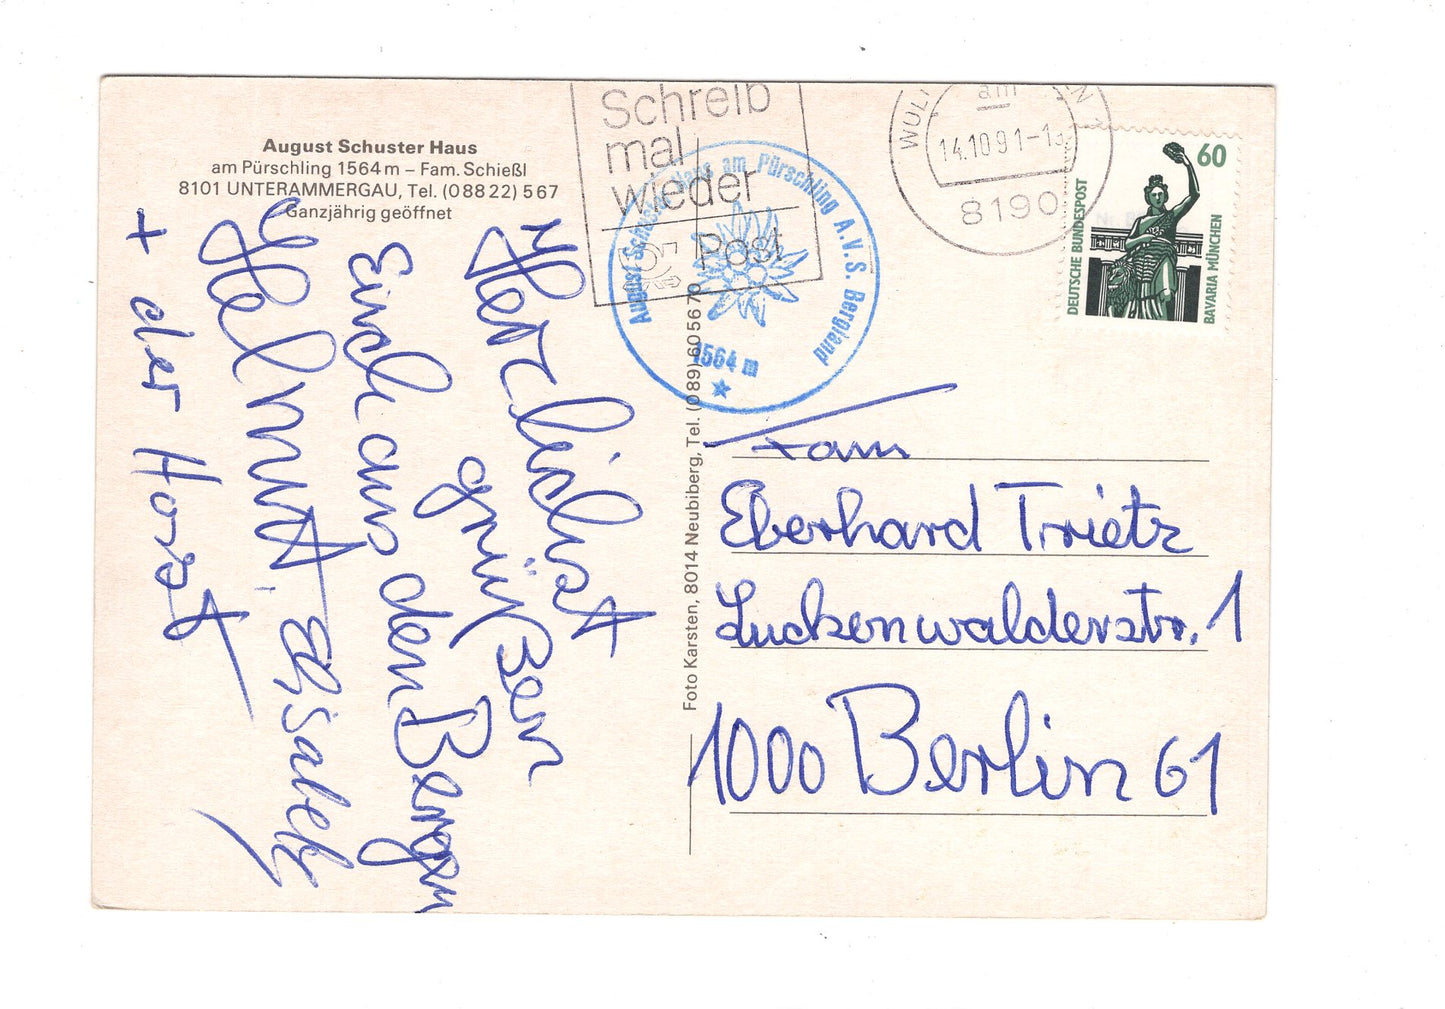 August Schuster Haus
am Pürschling 1564 m – Fam. Schießl
8101 UNTERAMMERGAU, Tel. (0 88 22) 5 67
Ganzjährig geöffnet
Schreib
mal
wieder
Post
August Schuster Haus am Pürschling A.V.S. Bergland
1564 m
am
14.10.91-1
8190
60
DEUTSCHE BUNDESPOST
BAVARIA MÜNCHEN
Herzlichst
grüßen
Euch aus den Bergen
Helmut,
+ der Horst
Foto Karsten, 8014 Neubiberg, Tel. (0 89) 60 56 70
Fam
Eberhard Trietz
Luckenwalderstr. 1
1000 Berlin 61